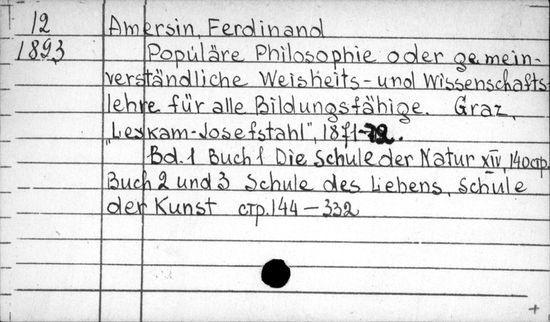 12 Amersin, Ferdinand
1893 Populäre Philosophie oder gemein-
verständliche Weisheits- und Wissenschafts-
lehre für alle Bildungsfähige. Graz,
"Leykam-Josefstahl", 1871-72.
Bd. 1 Buch 1 Die Schule der Natur XIV, 140 стр.
Buch 2 und 3 Schule des Liebens, Schule
der Kunst стр. 144 — 332
+